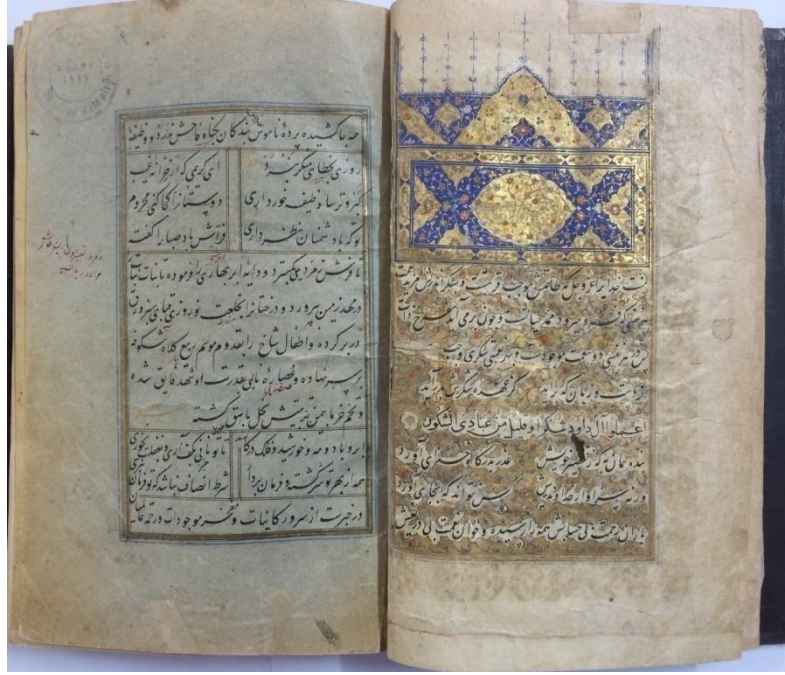 منت خدایرا عز و جل که طاعتش موجب قربتست و بشکر اندرش مزید نعمت
هر نفسی که فرو میرود ممد حیاتست و چون برمی آید مفرح ذات
پس در هر نفسی دو نعمت موجودست و بر هر نعمتی شکری واجب
از دست و زبان که برآید کز عهده شکرش بدر آید
اعملوا آل داود شکرا و قلیل من عبادی الشکور
بنده همان به که ز تقصیر خویش عذر بدرگاه خدای آورد
ورنه سزاوار خداوندیش کس نتواند که بجای آورد
باران رحمت بی حسابش همه را رسیده و خوان نعمت بی دریغش
همه جا کشیده پرده ناموس بندگان بگناه فاحش ندرد و وظیفه
روزی بخطای منکر نبرد ای کریمی که از خزانه غیب
گبر و ترسا وظیفه خور داری دوستانرا کجا کنی محروم
تو که با دشمنان نظر داری فراش باد صبا را گفت
تا فرش زمردین بگسترد و دایه ابر بهاری را فرموده تا بنات نبات
در مهد زمین بپرورد و درختانرا بخلعت نوروزی قبای سبز ورق
در بر کرده و اطفال شاخ را بقدوم موسم ربیع کلاه شکوفه
بر سر نهاده و عصاره نایی بقدرت او شهد فایق شده
و تخم خرما بیمن تربیتش نخل باسق گشته
ابر و باد و مه و خورشید و فلک درکارند تا تو نانی بکف آری و بغفلت نخوری
همه از بهر تو سرگشته و فرمان بردار شرط انصاف نباشد که تو فرمان نبری
در خبرست از سرور کاینات و مفخر موجودات و رحمت عالمیان